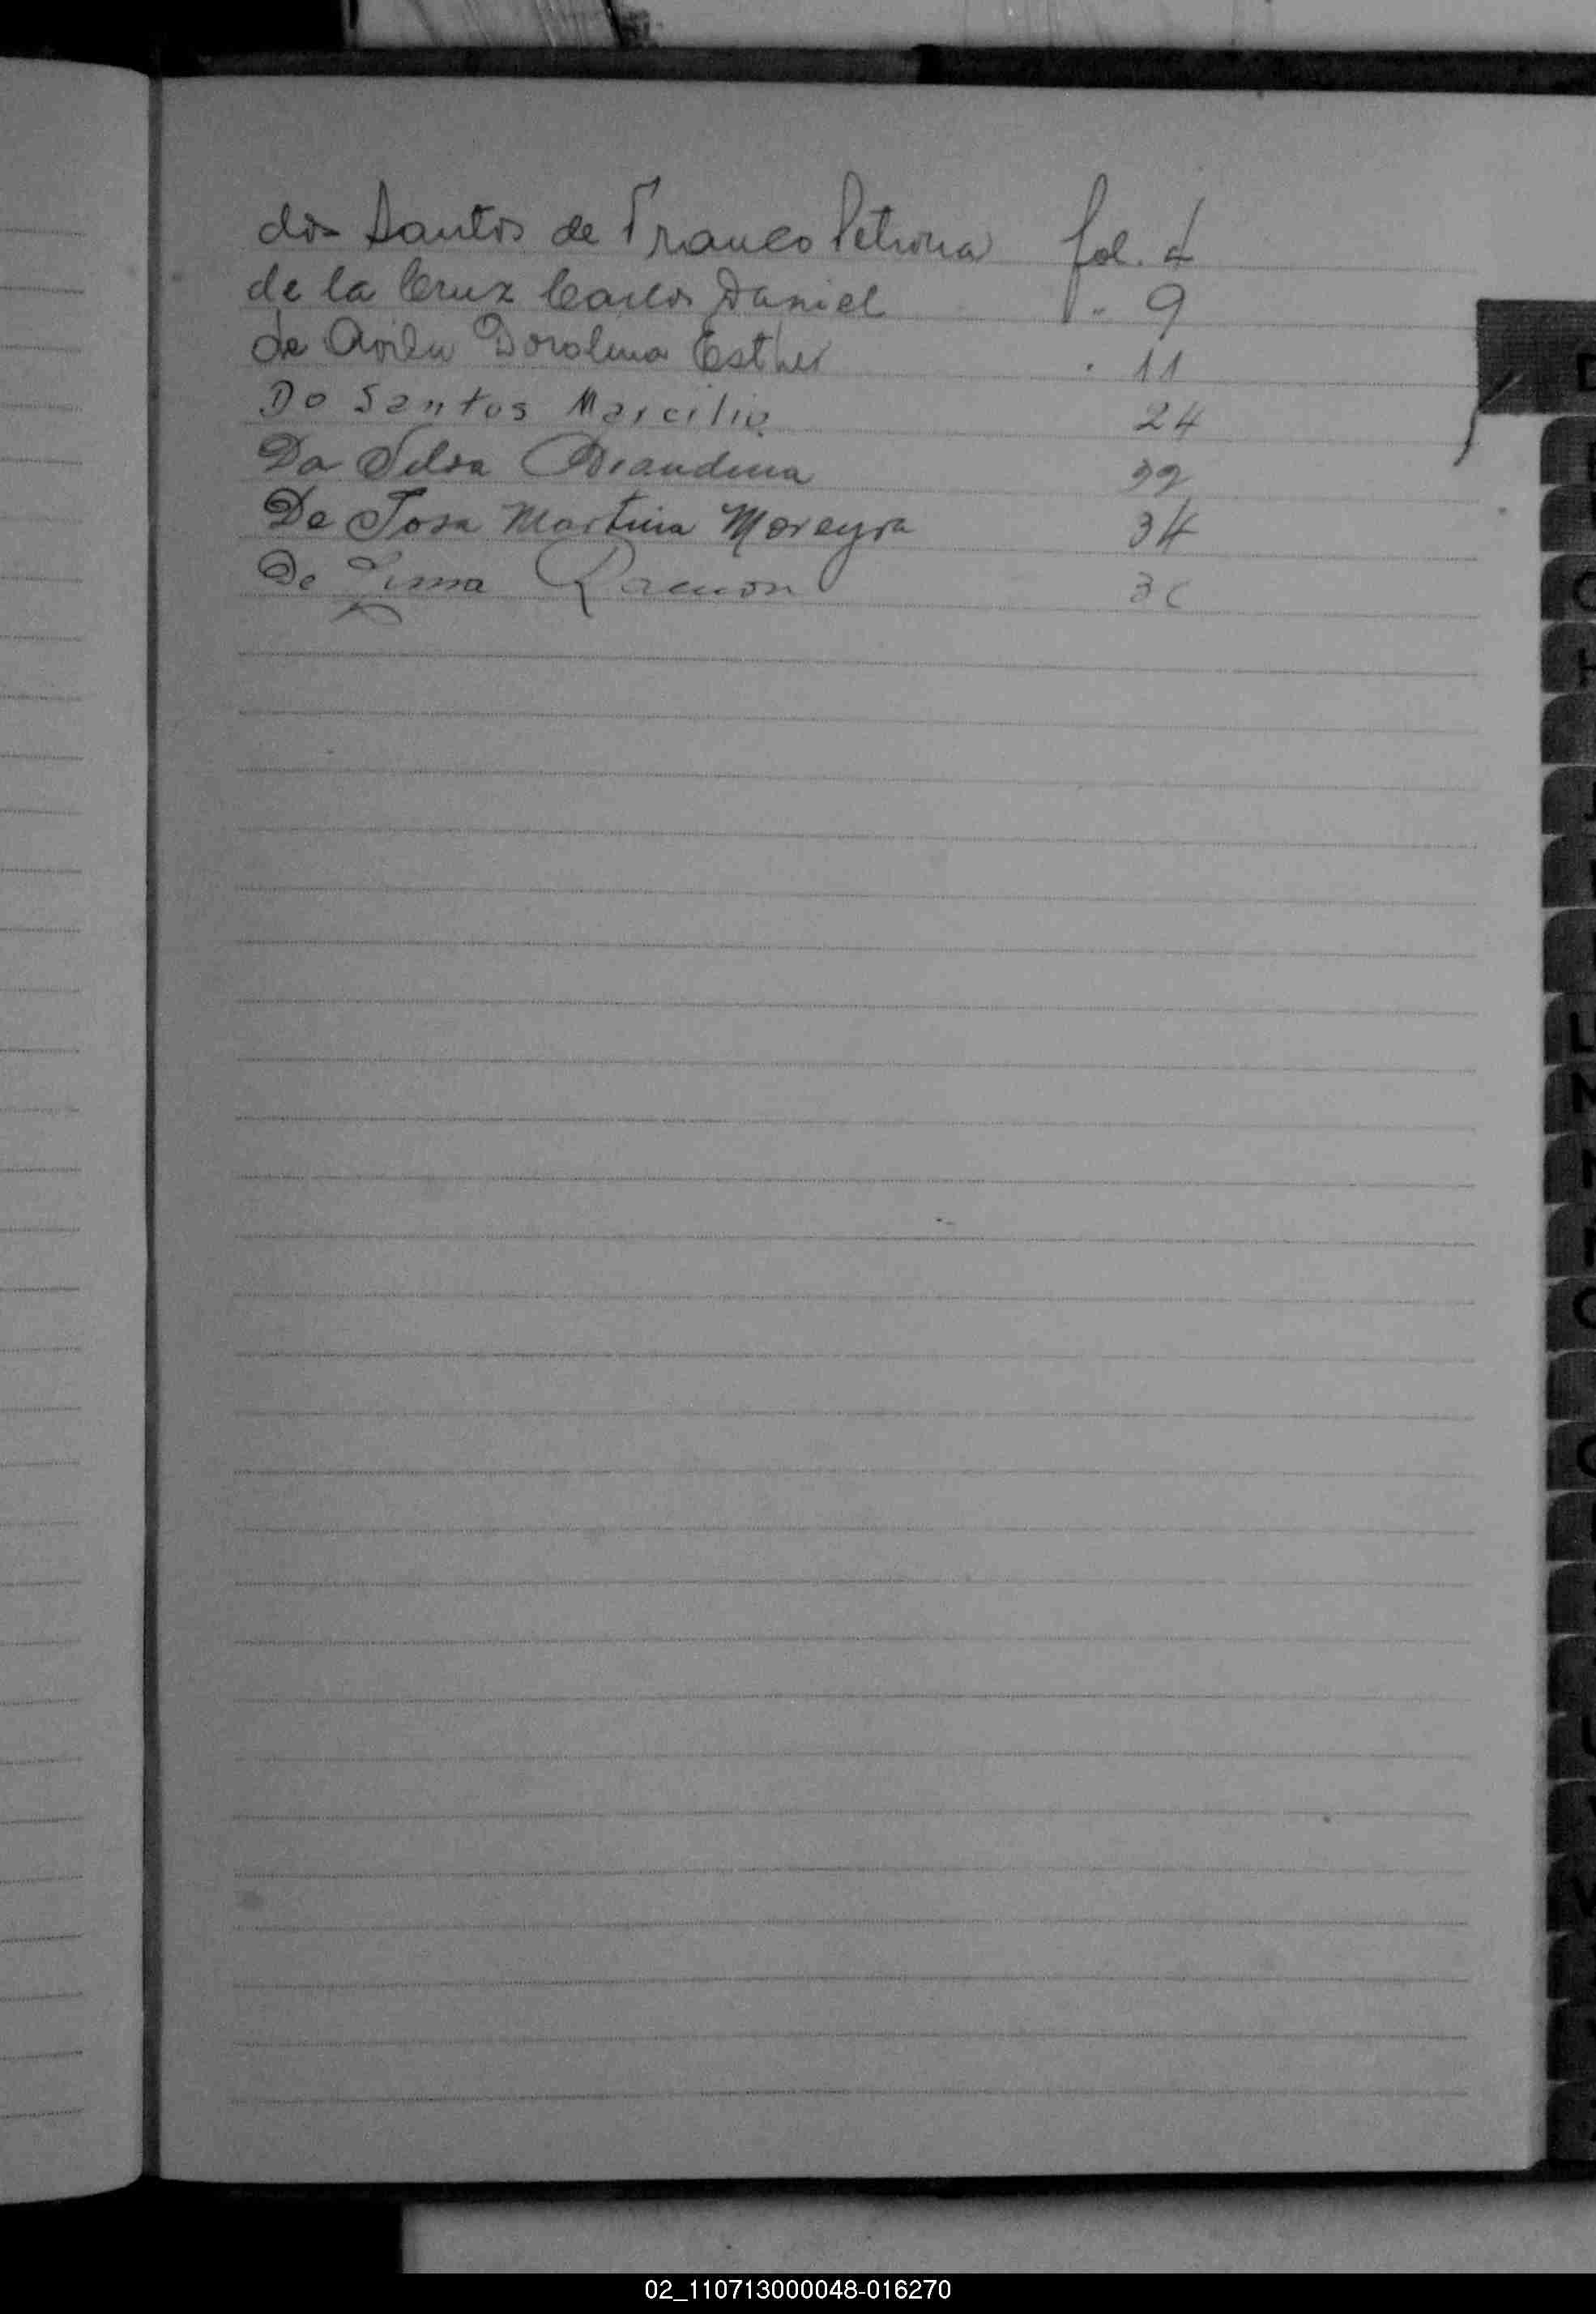 dos Santos de Franco Petrona fol. 4
de la Cruz Carlos Daniel " 9
de Avila Dorolina Esther " 11
Do Santos Marcilio 24
Da Silva 32
De Sosa Martina Moreyra 34
De Lima Ramon 36
D
02_110713000048-016270